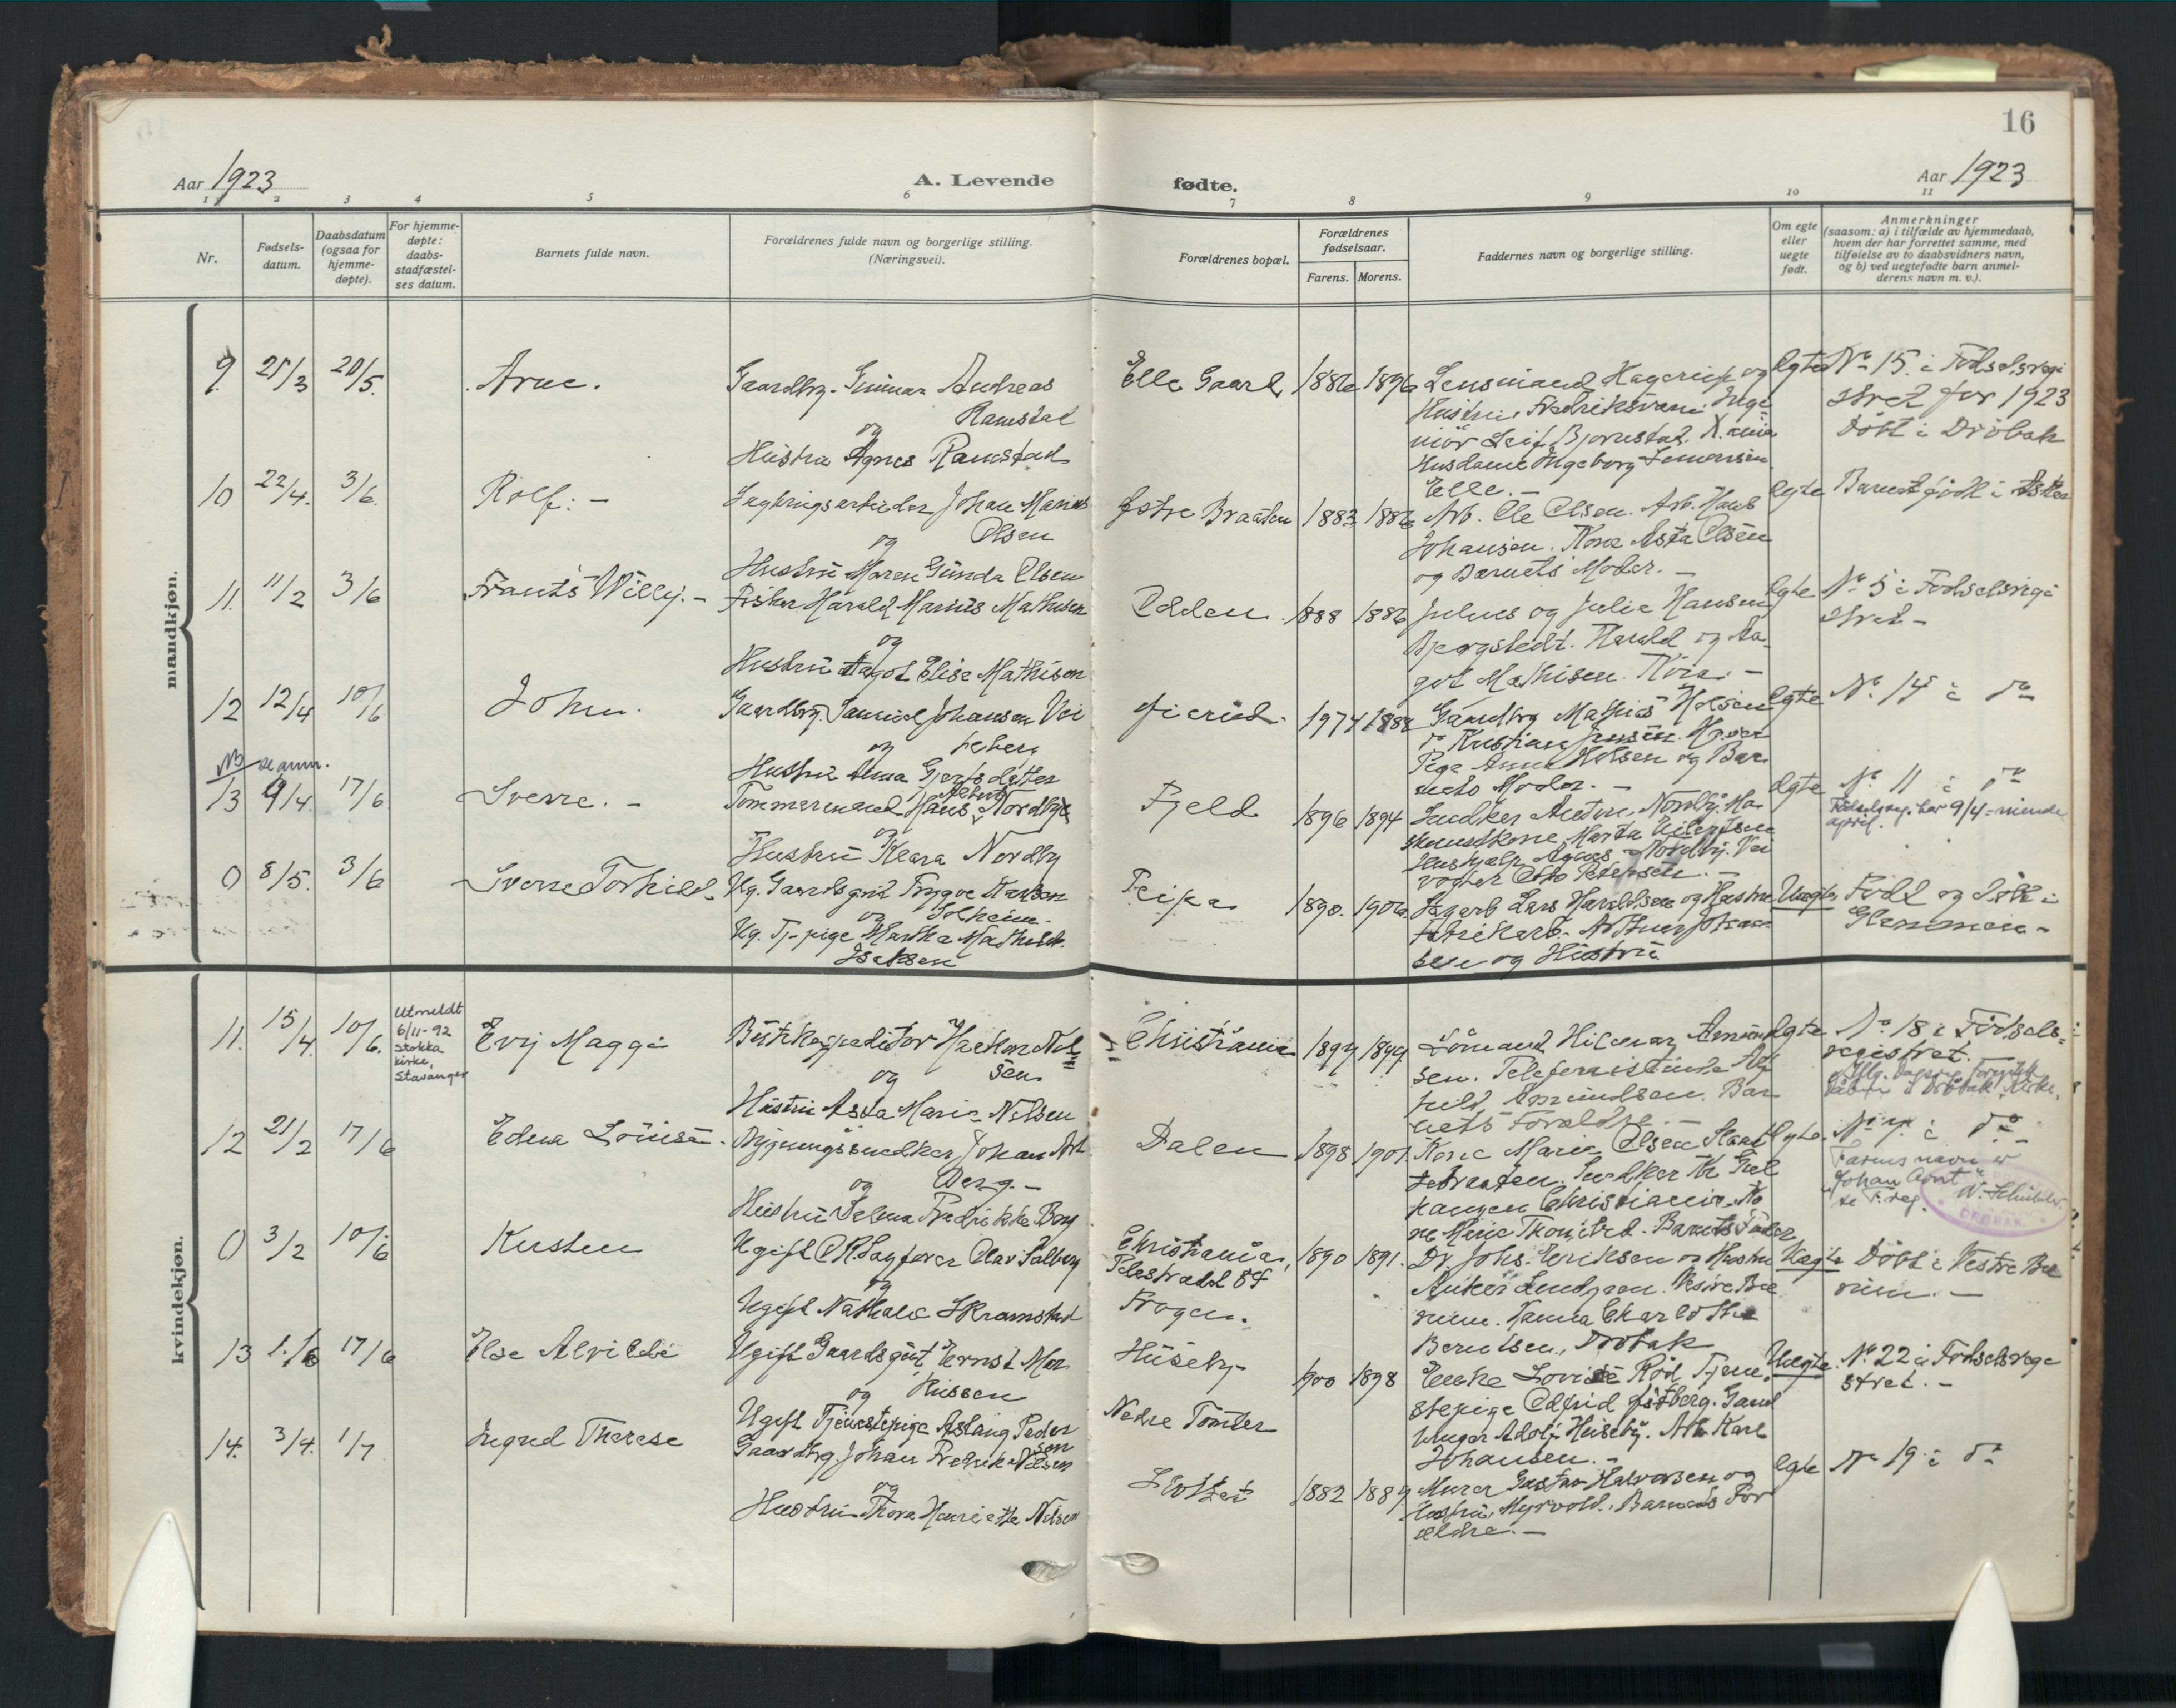 16
Aar 1923
A. Levende
fødte.
Aar 1923
1 2 3 4 5 6 7 8 9 10 11
Nr.
Fødsels-
datum.
Daabsdatum
(ogsaa for
hjemme-
døpte).
For hjemme-
døpte:
daabs-
stadfæstel-
ses datum.
Barnets fulde navn.
Forældrenes fulde navn og borgerlige stilling.
(Næringsvei).
Forældrenes bopæl.
Forældrenes
fødselsaar.
Farens. Morens.
Faddernes navn og borgerlige stilling.
Om egte
eller
uegte
født.
Anmerkninger
(saasom: a) i tilfælde av hjemmedaab,
hvem der har forrettet samme, med
tilføielse av to daabsvidners navn,
og b) ved uegtefødte barn anmel-
derens navn m. v.).
mandkjøn.
9. 25/3 20/5. Arne.
Gaardbr. Gunnar Andreas
Ramstad
og
Hustru Agnes Ramstad
Elle Gaard 1886 1896
Lensmand Hagerup og
Hustru, Fredriksvern. Inge
niör Leif Bjornstad. X.ania
Husdame Ingeborg
Elle. -
Egte
No 15 i Fodselsregi
stret for 1923
Döbt i Dröbak
10 22/4. 3/6. Rolf. -
Johan Marius
Olsen
og
Hustru Maren Gunda Olsen
Østre Braaten 1883 1886
Arb. Ole Olsen. Arb. Hans
Johansen. Kone Asta Olsen
og Barnets Moder. -
Egte
Barnet födt i Asker
11. 11/2 3/6 Frants Willy. -
Fisker Harald Marius Mathisen
og
Hustru Aagot Elise Mathisen
Odden. 1888 1886
Julius og Julie Hansen
Bjergstedt. Harald og Aa-
got Mathisen. -
Egte
No 5 i Fodselsregi
stret -
12 12/4 10/6 John.
Gaardbr. Samuel Johansen Vei
og
Hustru Anna Gjertsdatter
1974 1882
Gaardbr Mathias Holsen
do Kristian Jensen.
Pige Anna Holsen og Bar
nets Moder. -
Egte
No 14 i do
NB se anm.
13 9/4. 17/6. Sverre. -
Tommermand Hans Albert Nordby
og
Hustru Klara Nordby
Fjeld 1896 1894
Snedker Anton Nordby. Ma
Marta Eilertsen
Agnes Nordby. Vei
vogter Otto Petersen. -
Egte
No 11 i do
Födselsreg. har 9/4 = niende
april.
0 8/5. 3/6 Sverre Torhild.
Ug. Gaardsgut Trygve Karlsen
og Solheim.
Ug. Tj.pige Martha Mathilde
Isaksen
1890. 1906.
Lars Haraldsen og Hustru
Fabrikarb. Arthur Johan
sen og Hustru
Uegte
Född og döbt i
Glemmen -
kvindekjøn.
11. 15/4. 10/6.
Utmeldt
6/11-92
Stokka
kirke,
Stavanger
Evy Maggi
Butikexpeditör Haakon Nil
sen
og
Hustru Asta Marie Nilsen
Christiania 1899 1899
Sömand Hilmar Amund
sen. Telefonistinde Alf
hild Amundsen. Bar
nets Foraldre. -
Egte
No 18 i Födsels-
registret.
12 21/2 17/6 Edna Lóuisé.
Bygningssnedker Johan Arnt
og Berg. -
Hustru Selma Fredrikke Berg
Dalen 1898 1901.
Kone Marie Olsen
Snedker
Christiania.
Barnets Fader
Egte.
No 4. i do -
Farens navn er
"Johan Arnt"
se F. reg.
W. Schübeler.
DRØBAK
0 3/2 10/6 Kirsten
Ugift OR.Sagförer Olav Salberg
og
Ugift Nathalie Skramstad
Christiania,
Pilestrædet 84
Frogn.
1890 1891.
Dr. Johs. Eriksen og Hustru
Anker Lundgren. Vestre Bæ
rum. Hanna Charlotte
Berntsen, Dröbak
Uegte
Döbt i Vestre Bæ
rum. -
13 1./6 17/6 Else Alvilde
Ugift Gaardsgut Ernst Mar
og kussen
Ugift Tjenestepige Aslaug Peder
sen
Huseby
Nedre Tomter
1900 1898
Enke Lovise Röd. Tjene
stepige Östberg. Gaard
bruger Adolf Huseby. Arb Karl
Johansen. -
Uegte.
No 22 i Fodselsregi
stret. -
14. 3/4. 1/7 Ingrid Therese
Gaardbrg. Johan Fredrik Nilsen
og
Hustru Thora Henriette Nilsen
1882 1889
Murer Gustav Halvorsen og
Hustru, Myrvold. Barnets For
ældre. -
Egte
No 19 i do